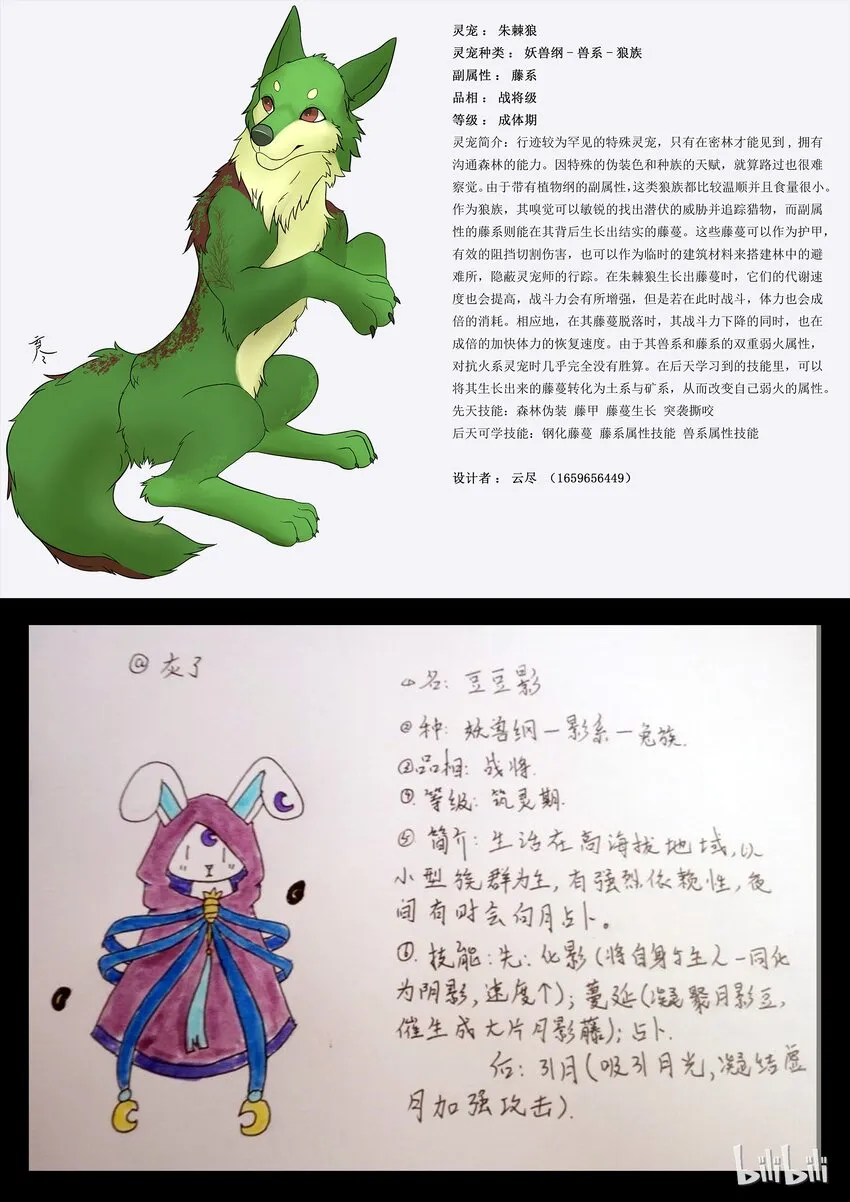 灵宠： 朱棘狼
灵宠种类： 妖兽纲－兽系－狼族
副属性： 藤系
品相： 战将级
等级： 成体期
灵宠简介：行迹较为罕见的特殊灵宠，只有在密林才能见到，拥有
沟通森林的能力。因特殊的伪装色和种族的天赋，就算路过也很难
察觉。由于带有植物纲的副属性，这类狼族都比较温顺并且食量很小。
作为狼族，其嗅觉可以敏锐的找出潜伏的威胁并追踪猎物，而副属
性的藤系则能在其背后生长出结实的藤蔓。这些藤蔓可以作为护甲，
有效的阻挡切割伤害，也可以作为临时的建筑材料来搭建林中的避
难所，隐蔽灵宠师的行踪。在朱棘狼生长出藤蔓时，它们的代谢速
度也会提高，战斗力会有所增强，但是若在此时战斗，体力也会成
倍的消耗。相应地，在其藤蔓脱落时，其战斗力下降的同时，也在
成倍的加快体力的恢复速度。由于其兽系和藤系的双重弱火属性，
对抗火系灵宠时几乎完全没有胜算。在后天学习到的技能里，可以
将其生长出来的藤蔓转化为土系与矿系，从而改变自己弱火的属性。
先天技能：森林伪装 藤甲 藤蔓生长 突袭撕咬
后天可学技能：钢化藤蔓 藤系属性技能 兽系属性技能
设计者： 云尽 （1659656449）
@灰了
①名：豆豆影
②种：妖兽纲－影系－兔族.
③品相：战将.
④等级：筑灵期.
⑤简介：生活在高海拔地域，以
小型族群为生，有强烈依赖性，夜
间有时会向月占卜。
⑥.技能：先：化影（将自身与主人一同化
为阴影，速度个）；蔓延（凝聚月影豆，
催生成大片月影藤）；占卜.
后：引月（吸引月光，凝结虚
月加强攻击）.
bilibili